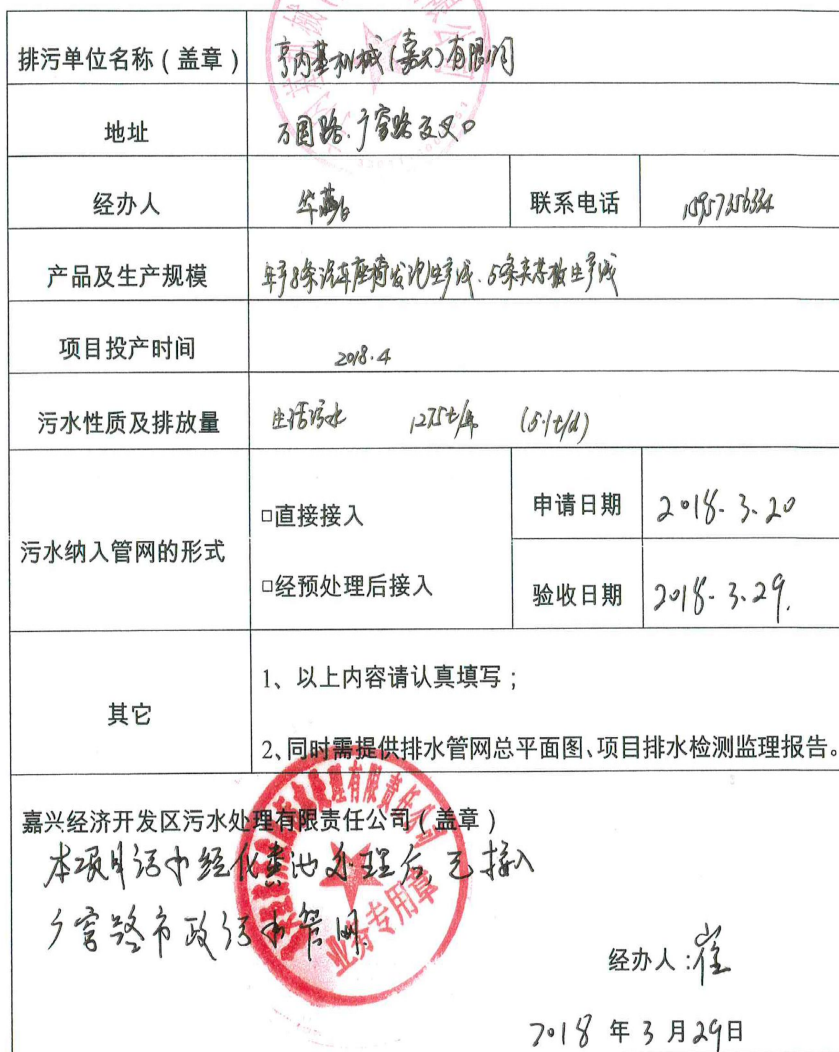 排污单位名称（盖章） 亨内基机械(嘉兴)有限公司
地址 万国路、广富路交叉口
经办人 华燕 联系电话
产品及生产规模 年产8条汽车座椅发泡生产线、5条夹芯板生产线
项目投产时间 2018.4
污水性质及排放量 生活污水 1275t/年 (5.1t/d)
污水纳入管网的形式 □直接接入 申请日期 2018.3.20
□经预处理后接入 验收日期 2018.3.29.
其它 1、以上内容请认真填写；
2、同时需提供排水管网总平面图、项目排水检测监理报告。
嘉兴经济开发区污水处理有限责任公司（盖章）
本项目污水经化粪池处理后，已接入
广富路市政污水管网
业务专用章
经办人：崔
2018 年 3 月 29 日